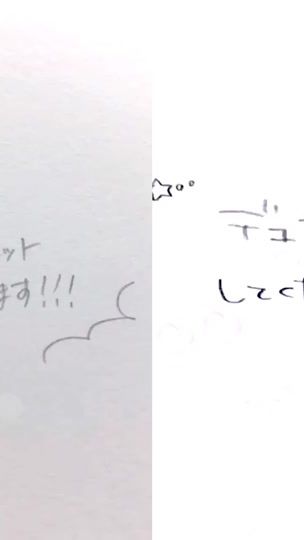 ット
ます!!!
デュ
してく